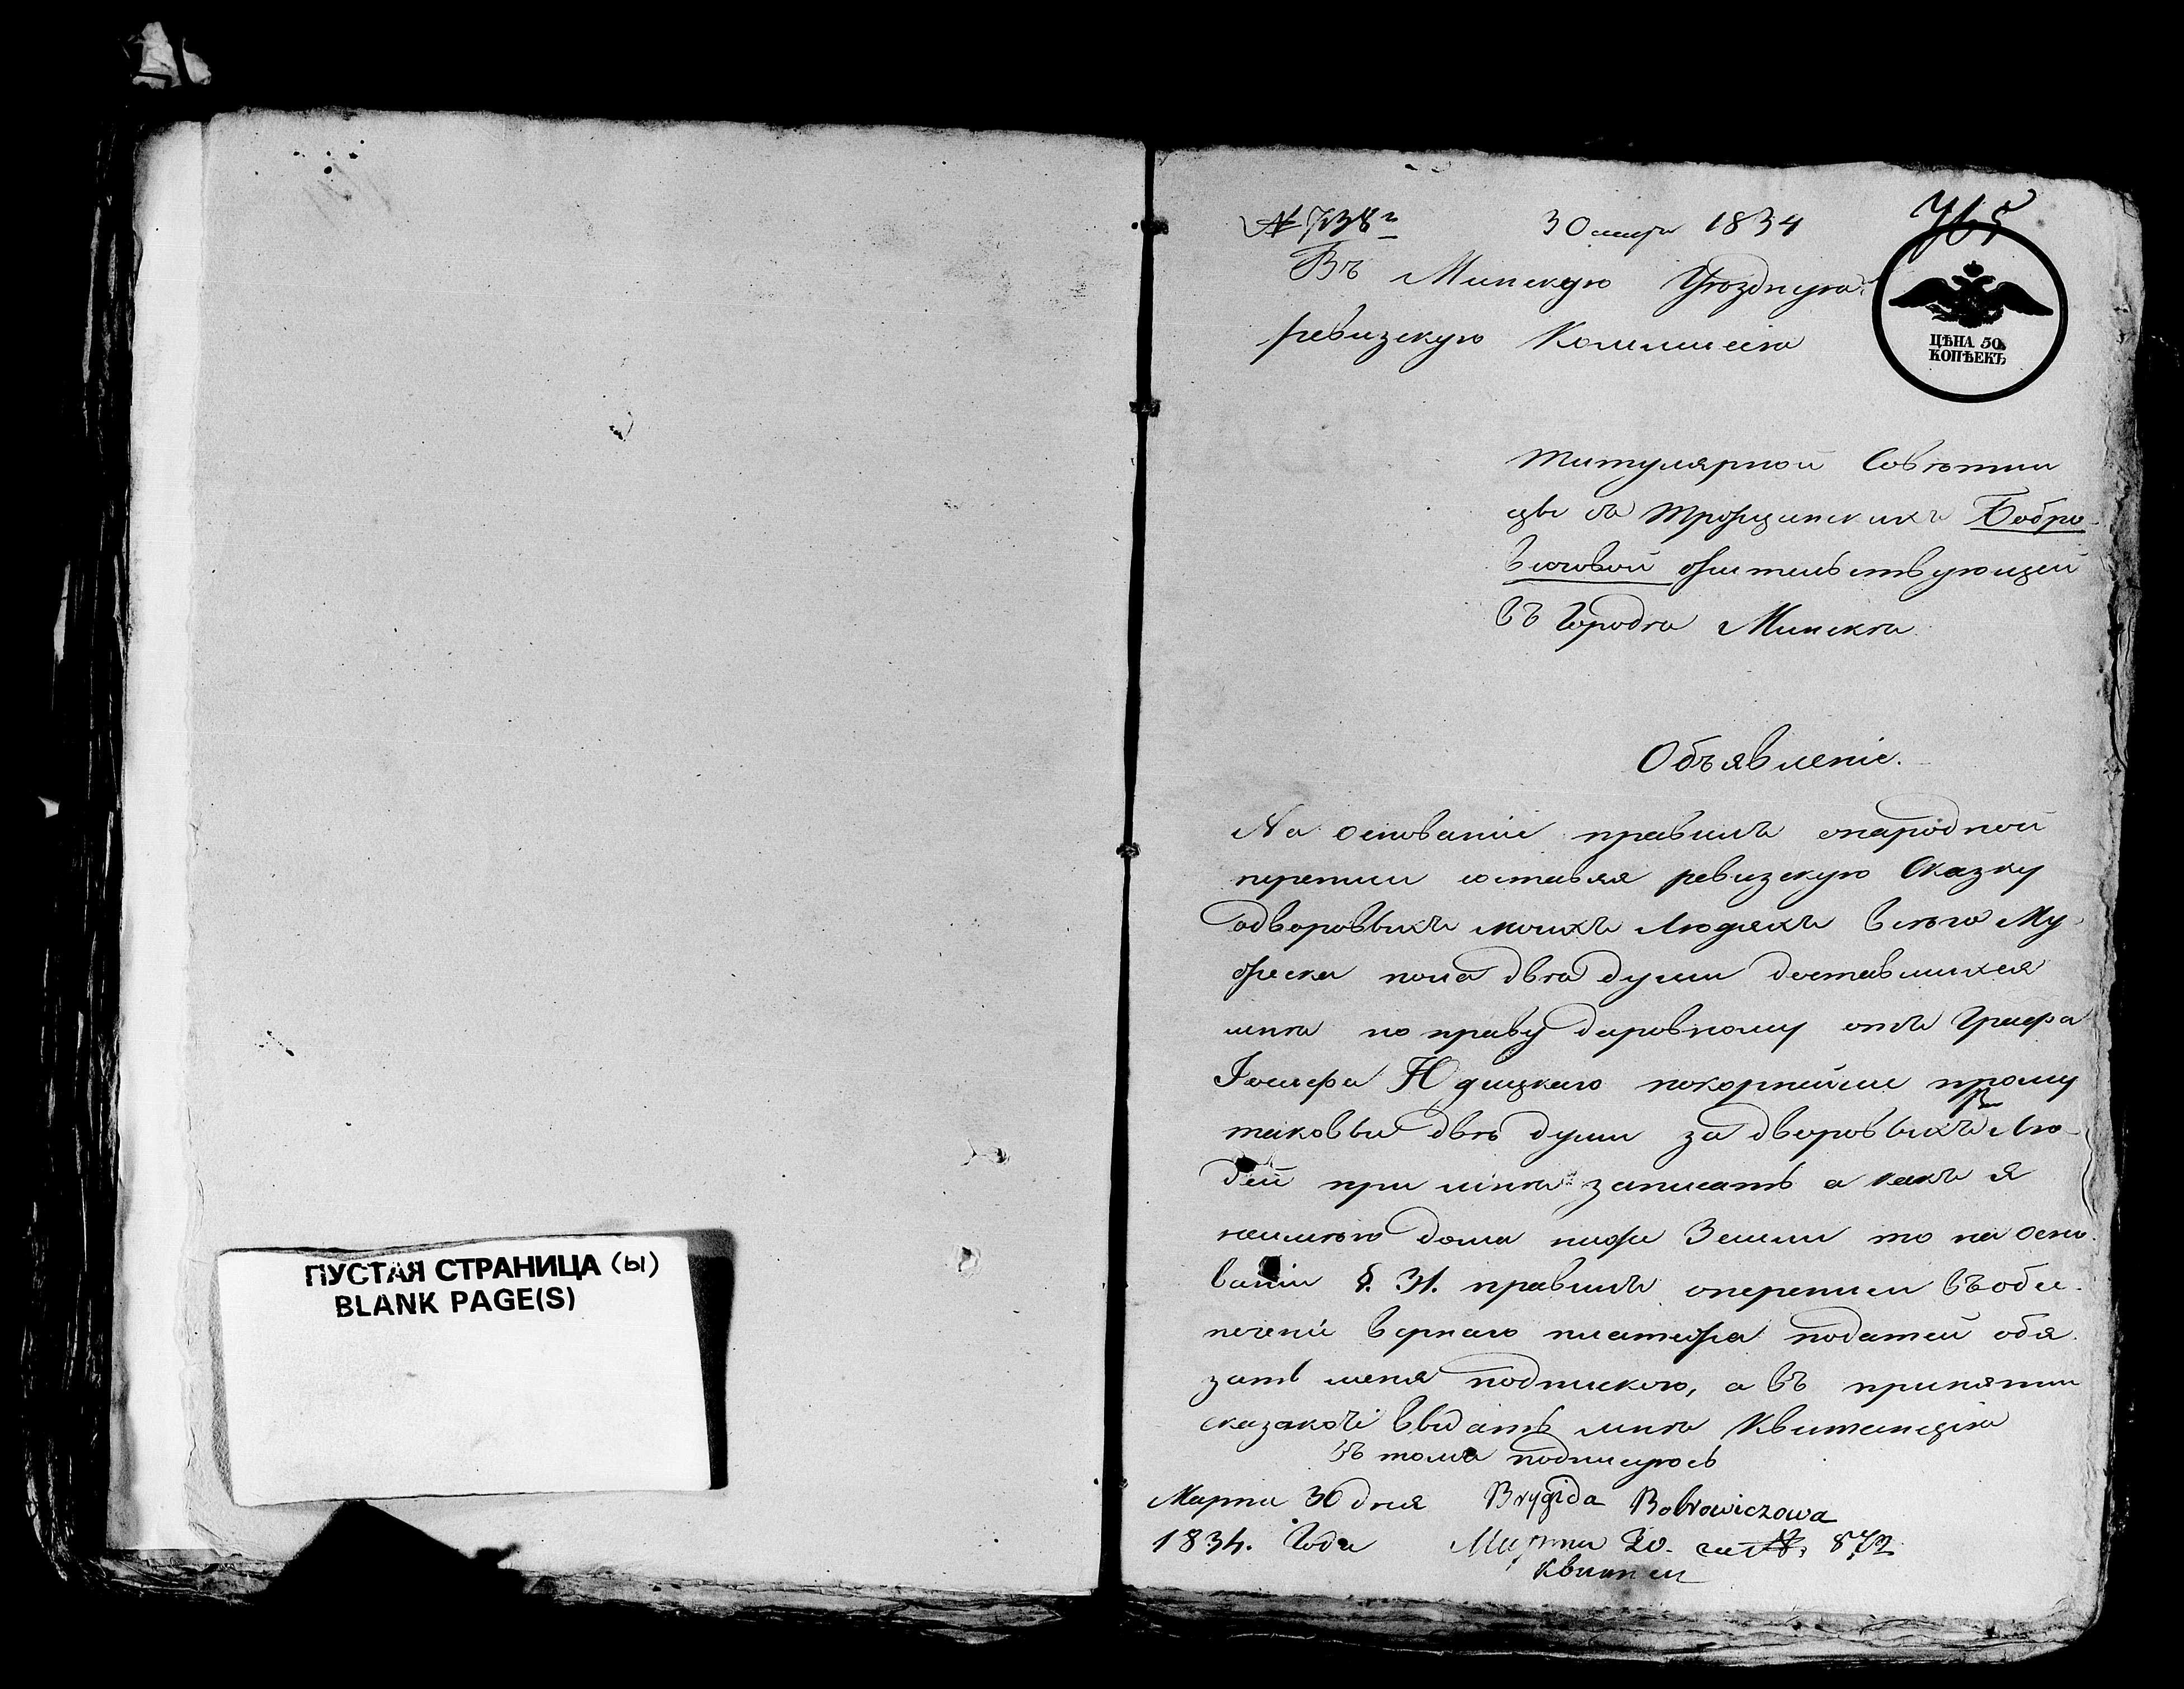 ПУСТАЯ СТРАНИЦА (ы)
BLANK PAGE(S)
30 марта 1834
765
Въ Минскую Уѣздную
ревизскую Коммисію
ЦѢНА 50.
КОПѢЕКЪ
Титулярной Совѣтни
цы Бобро
вичовой жительствующей
въ Городѣ Минскѣ
Объявленіе.
На основаніи правилъ онародной
переписи составя ревизскую Сказку
одворовыхъ моихъ людяхъ всего Му
жеска пола двѣ души доставшихся
мнѣ по праву даровному отъ Графа
Іосифа Юдицкаго покорнейше прошу
таковыя двѣ души за дворовыхъ Лю-
дей при мнѣ записать а какъ я
неимѣю дома ниже Земли то на осно
ваніи §. 31. правилъ опереписи въ обез
печеніи вернаго платежа податей обя
зать меня подпискою, а въ принятіи
сказакъ выдать мнѣ Квитанцію
въ томъ подписуюсь
Марта 30 дня Brygida Bobrowiczowa
1834. Года Марта 30. за № 872
квитан